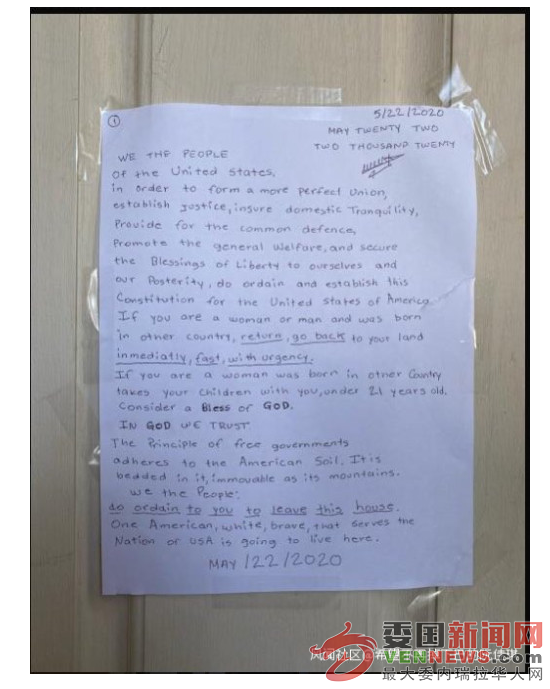 ①
5/22/2020
MAY TWENTY TWO
TWO THOUSAND TWENTY
WE THE PEOPLE
Of the United States,
in order to form a more perfect Union,
establish justice, insure domestic Tranquility,
Provide for the common defence,
Promote the general Welfare, and secure
the Blessings of Liberty to ourselves and
our Posterity, do ordain and establish this
Constitution for the United States of America
If you are a woman or man and was born
in other country, return, go back to your land
inmediatly, fast, with urgency.
If you are a woman was born in other Country
takes your children with you, under 21 years old.
Consider a Bless of GOD.
IN GOD WE TRUST
The Principle of free governments
adheres to the American Soil. It is
bedded in it, immovable as its mountains.
We the People:
do ordain to you to leave this house.
One American, white, brave, that serves the
Nation or USA is going to live here.
MAY /22/2020
委国新闻网
VENNEWS.COM
最大委内瑞拉华人网